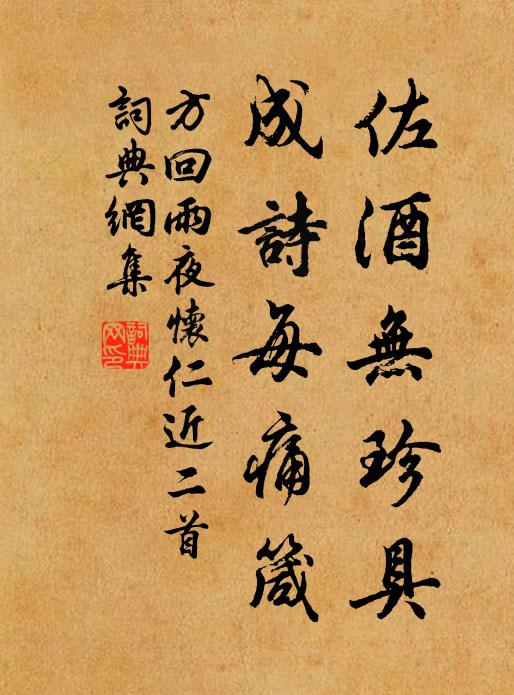 佐酒無珍具
成詩每痛箴
方回雨夜懷仁近二首
詞典網集
詞典網印